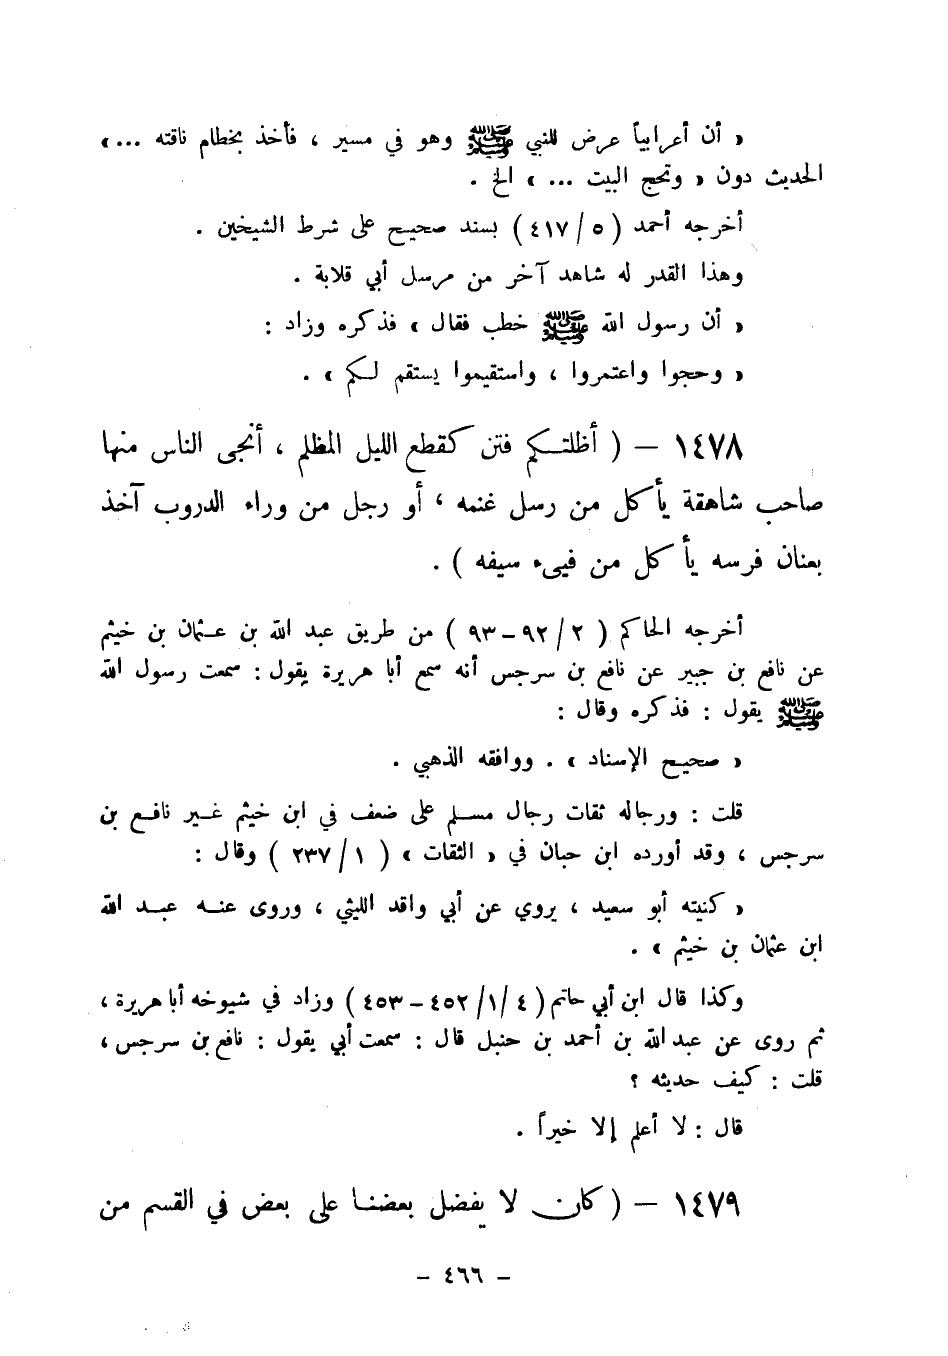 « أن أعرابياً عرض للنبي ﷺ وهو في مسير ، فأخذ بخطام ناقته ... »
الحديث دون « وتحج البيت ... » الخ .
أخرجه أحمد ( ٥ / ٤١٧ ) بسند صحيح على شرط الشيخين .
وهذا القدر له شاهد آخر من مرسل أبي قلابة .
« أن رسول الله ﷺ خطب فقال » فذكره وزاد :
« وحجوا واعتمروا ، واستقيموا يستقم لكم » .
١٤٧٨ – ( أظلتكم فتن كقطع الليل المظلم ، أنجى الناس منها
صاحب شاهقة يأكل من رسل غنمه ، أو رجل من وراء الدروب آخذ
بعنان فرسه يأكل من فيىء سيفه ) .
أخرجه الحاكم ( ٢ / ٩٢ – ٩٣ ) من طريق عبد الله بن عثمان بن خيثم
عن نافع بن جبير عن نافع بن سرجس أنه سمع أبا هريرة يقول : سمعت رسول الله
ﷺ يقول : فذكره وقال :
« صحيح الإسناد » . ووافقه الذهبي .
قلت : ورجاله ثقات رجال مسلم على ضعف في ابن خيثم غير نافع بن
سرجس ، وقد أورده ابن حبان في « الثقات » ( ١ / ٢٣٧ ) وقال :
« كنيته أبو سعيد ، يروي عن أبي واقد الليثي ، وروى عنه عبد الله
ابن عثمان بن خيثم » .
وكذا قال ابن أبي حاتم ( ٤ / ١ / ٤٥٢ – ٤٥٣ ) وزاد في شيوخه أبا هريرة ،
ثم روى عن عبد الله بن أحمد بن حنبل قال : سمعت أبي يقول : نافع بن سرجس ،
قلت : كيف حديثه ؟
قال : لا أعلم إلا خيراً .
١٤٧٩ – ( كان لا يفضل بعضنا على بعض في القسم من
– ٤٦٦ –